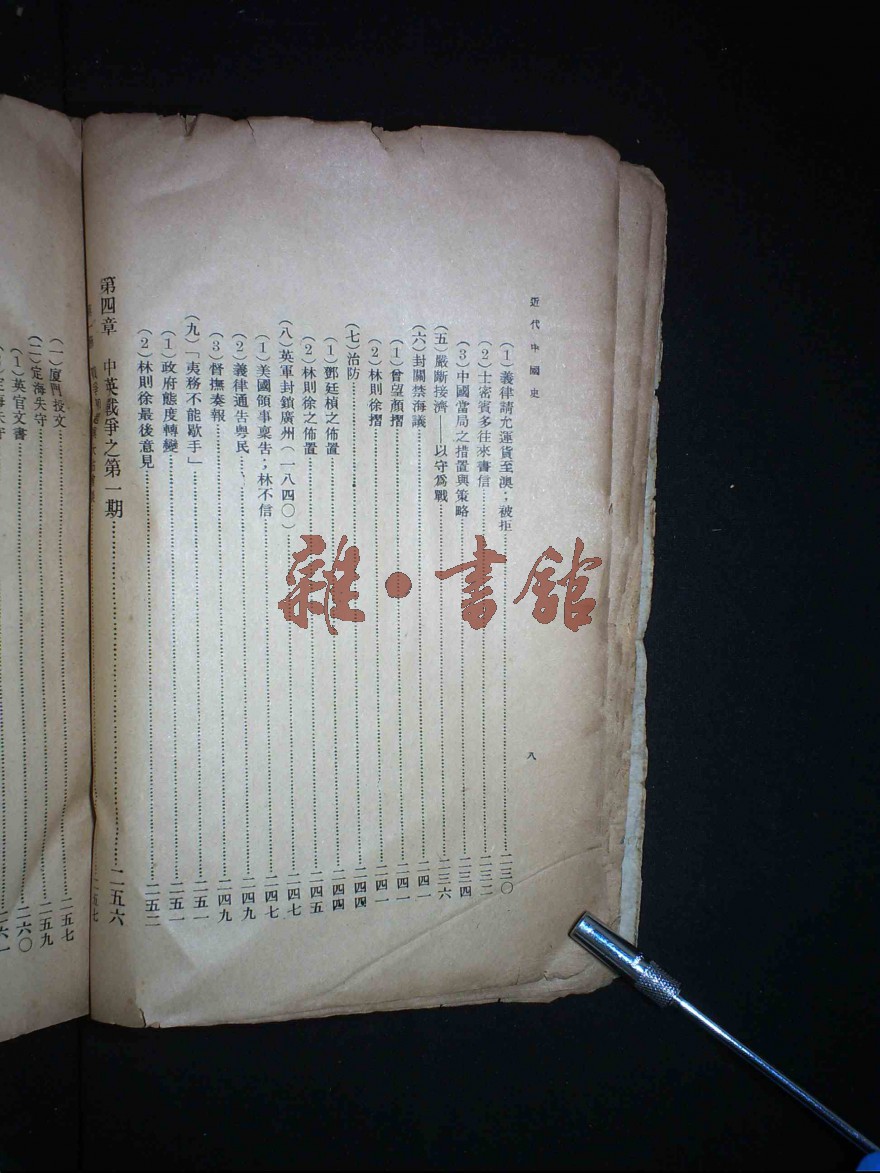 近代中國史
(1)義律請允運貨至澳；被拒……二三〇
(2)士密賓多往來書信……二三二
(3)中國當局之措置與策略……二三四
(五)嚴斷接濟——以守爲戰……二三六
(六)封關禁海議……二四一
(1)曾望顏摺……二四一
(2)林則徐摺……二四一
(七)治防……二四四
(1)鄧廷楨之佈置……二四四
(2)林則徐之佈置……二四五
(八)英軍封鎖廣州(一八四〇)……二四七
(1)美國領事稟告；林不信……二四七
(2)義律通告粤民……二四九
(3)督撫奏報……二四九
(九)「夷務不能歇手」……二五一
(1)政府態度轉變……二五一
(2)林則徐最後意見……二五二
第四章 中英戰爭之第一期……二五六
八
(一)廈門投文……二五七
(二)定海失守……二五九
(1)英官文書……二六〇
雜·書館